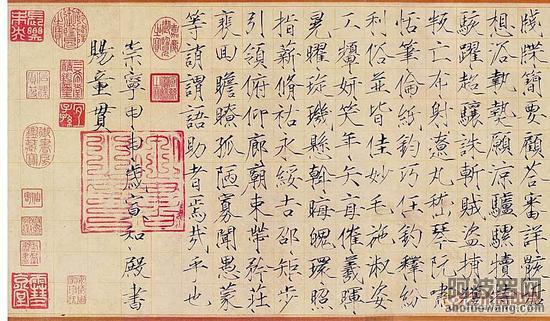 牋牒簡要顧答審詳骸垢
想浴執熱願涼驢騾犢特
駭躍超驤誅斬賊盜捕獲
叛亡布射遼丸嵇琴阮嘯
恬筆倫紙鈞巧任釣釋紛
利俗並皆佳妙毛施淑姿
工顰妍笑年矢每催羲暉
晃曜琁璣懸斡晦魄環照
指薪脩祜永綏吉邵矩步
引領俯仰廊廟束帶矜莊
裵回瞻眺孤陋寡聞愚蒙
等誚謂語助者焉哉乎也
崇寧甲申歲宣和殿書
賜童貫
阿波罗网
aboluowang.com